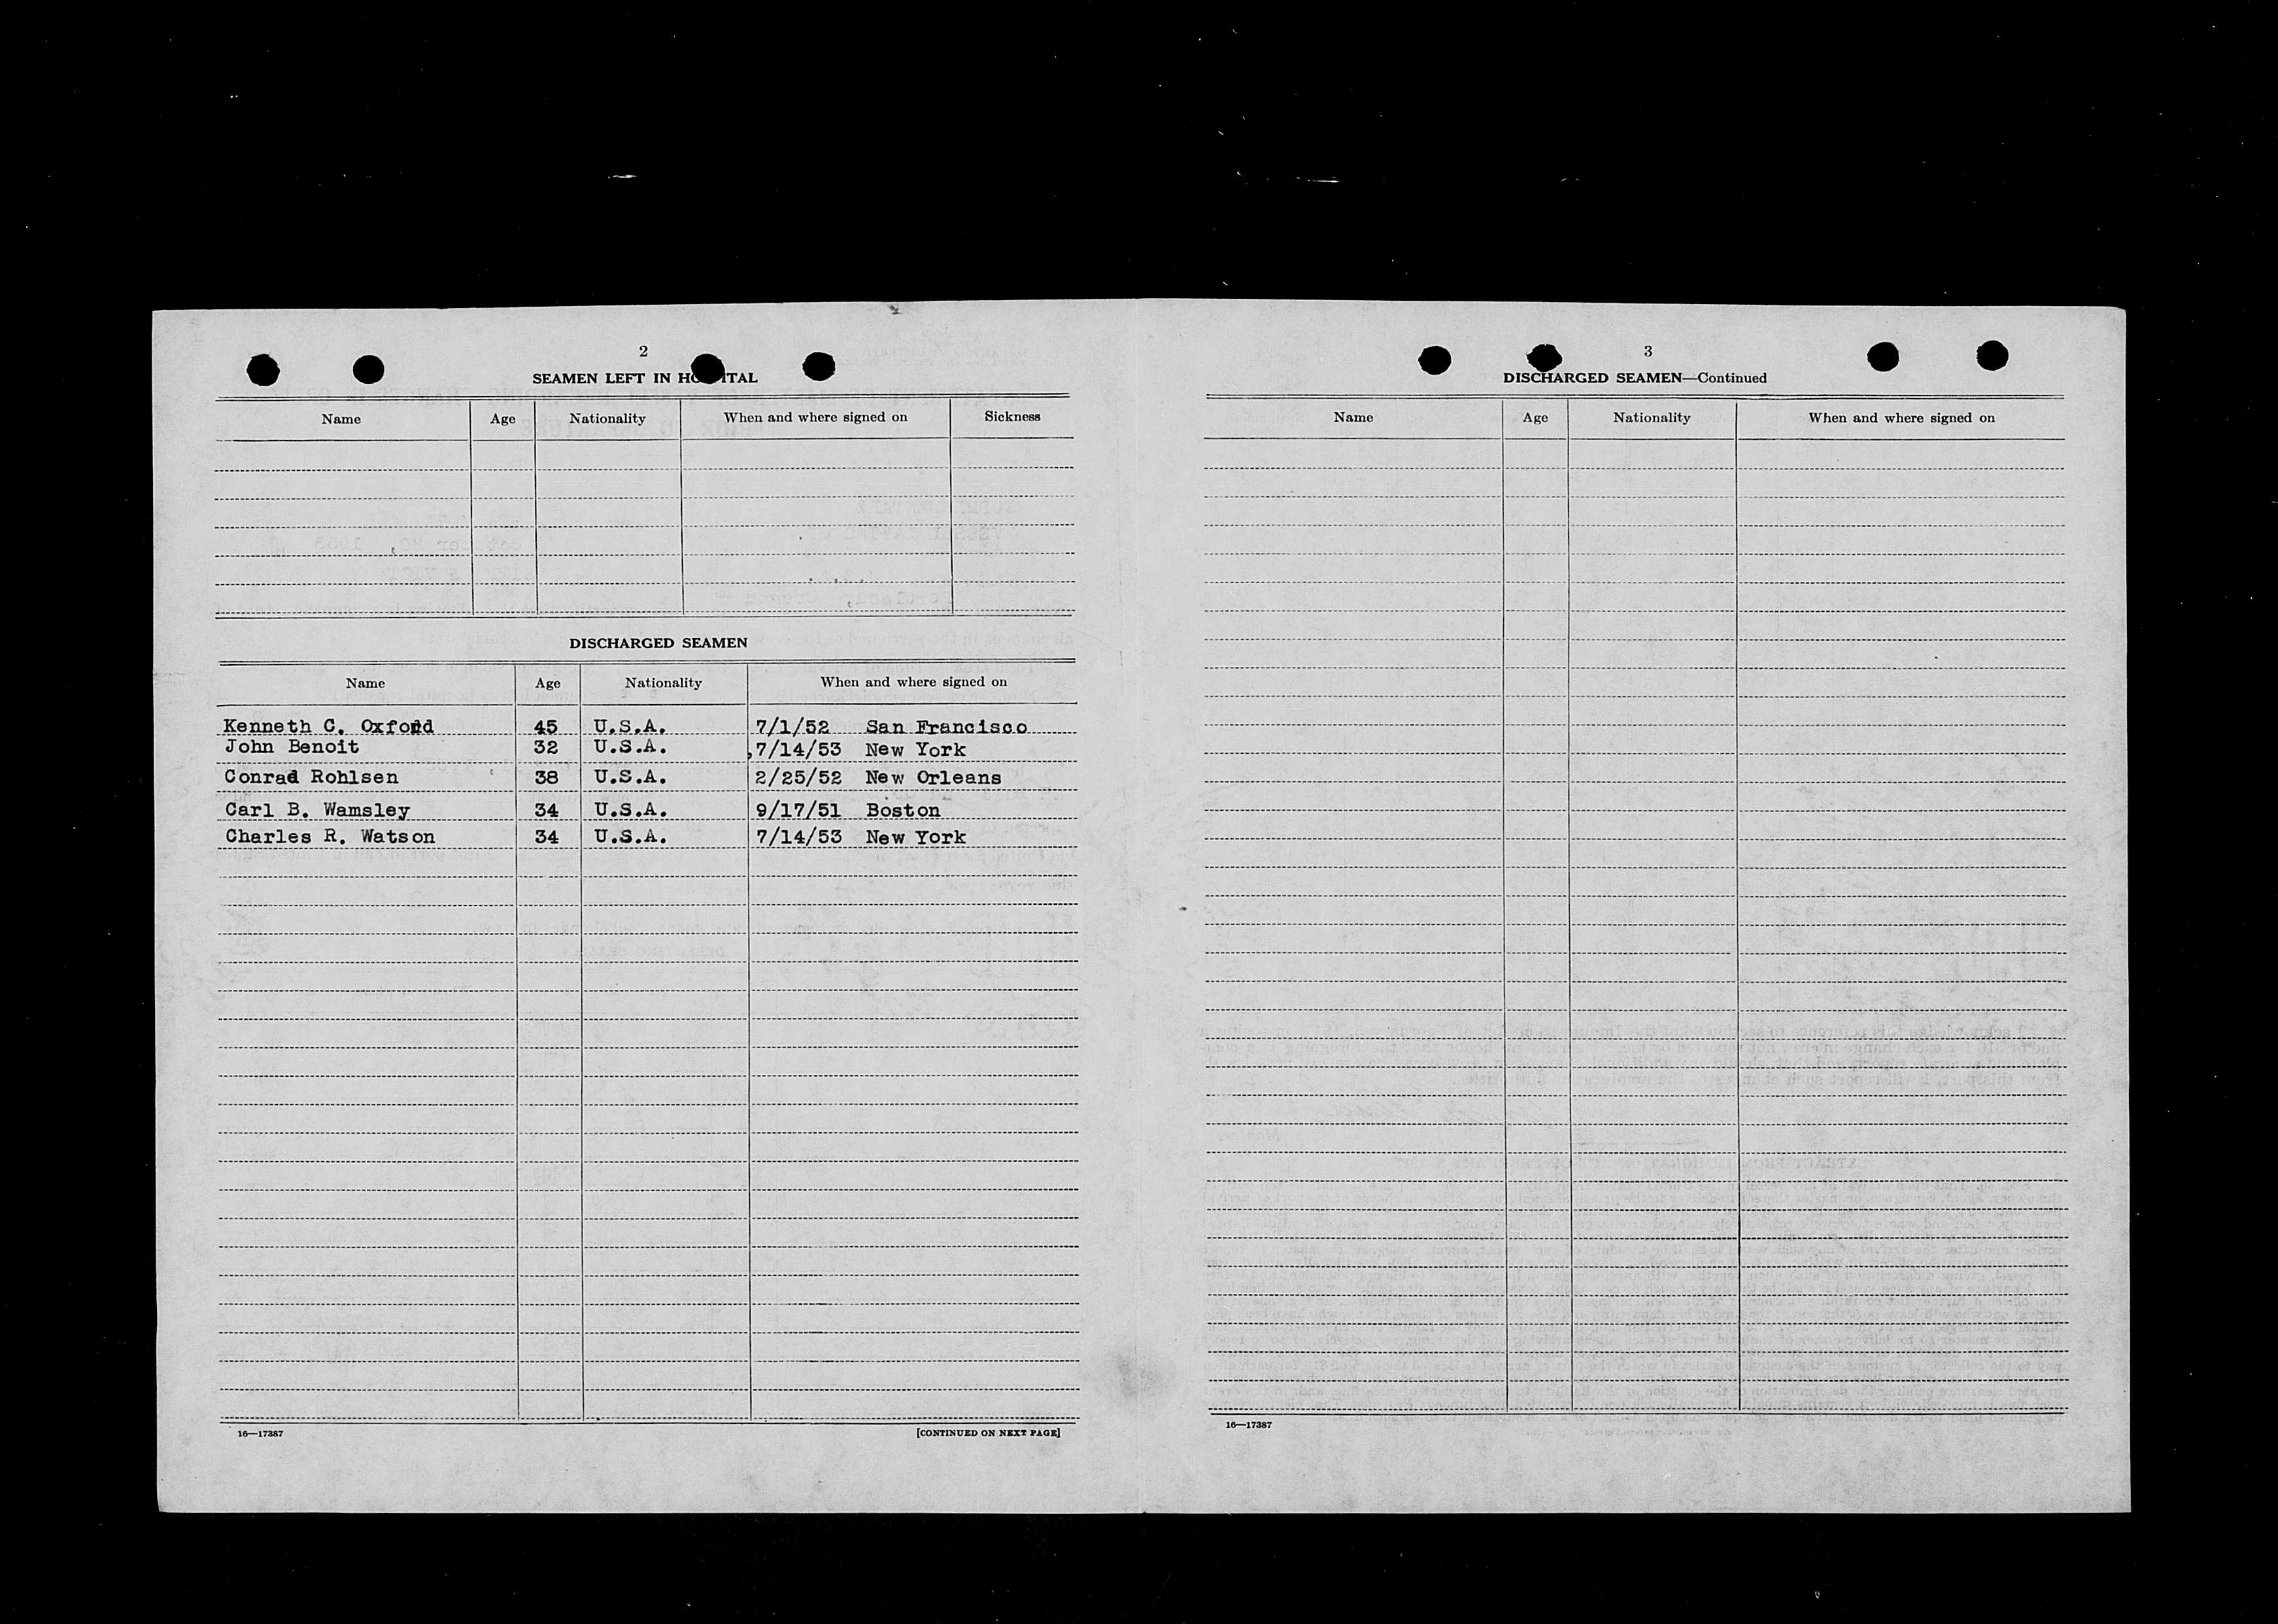 2
SEAMEN LEFT IN HOSPITAL
Name Age Nationality When and where signed on Sickness
DISCHARGED SEAMEN
Name Age Nationality When and where signed on
Kenneth C. Oxford 45 U.S.A. 7/1/52 San Francisco
John Benoit 32 U.S.A. 7/14/53 New York
Conrad Rohlsen 38 U.S.A. 2/25/52 New Orleans
Carl B. Wamsley 34 U.S.A. 9/17/51 Boston
Charles R. Watson 34 U.S.A. 7/14/53 New York
16—17387 [CONTINUED ON NEXT PAGE]
3
DISCHARGED SEAMEN—Continued
Name Age Nationality When and where signed on
16—17387